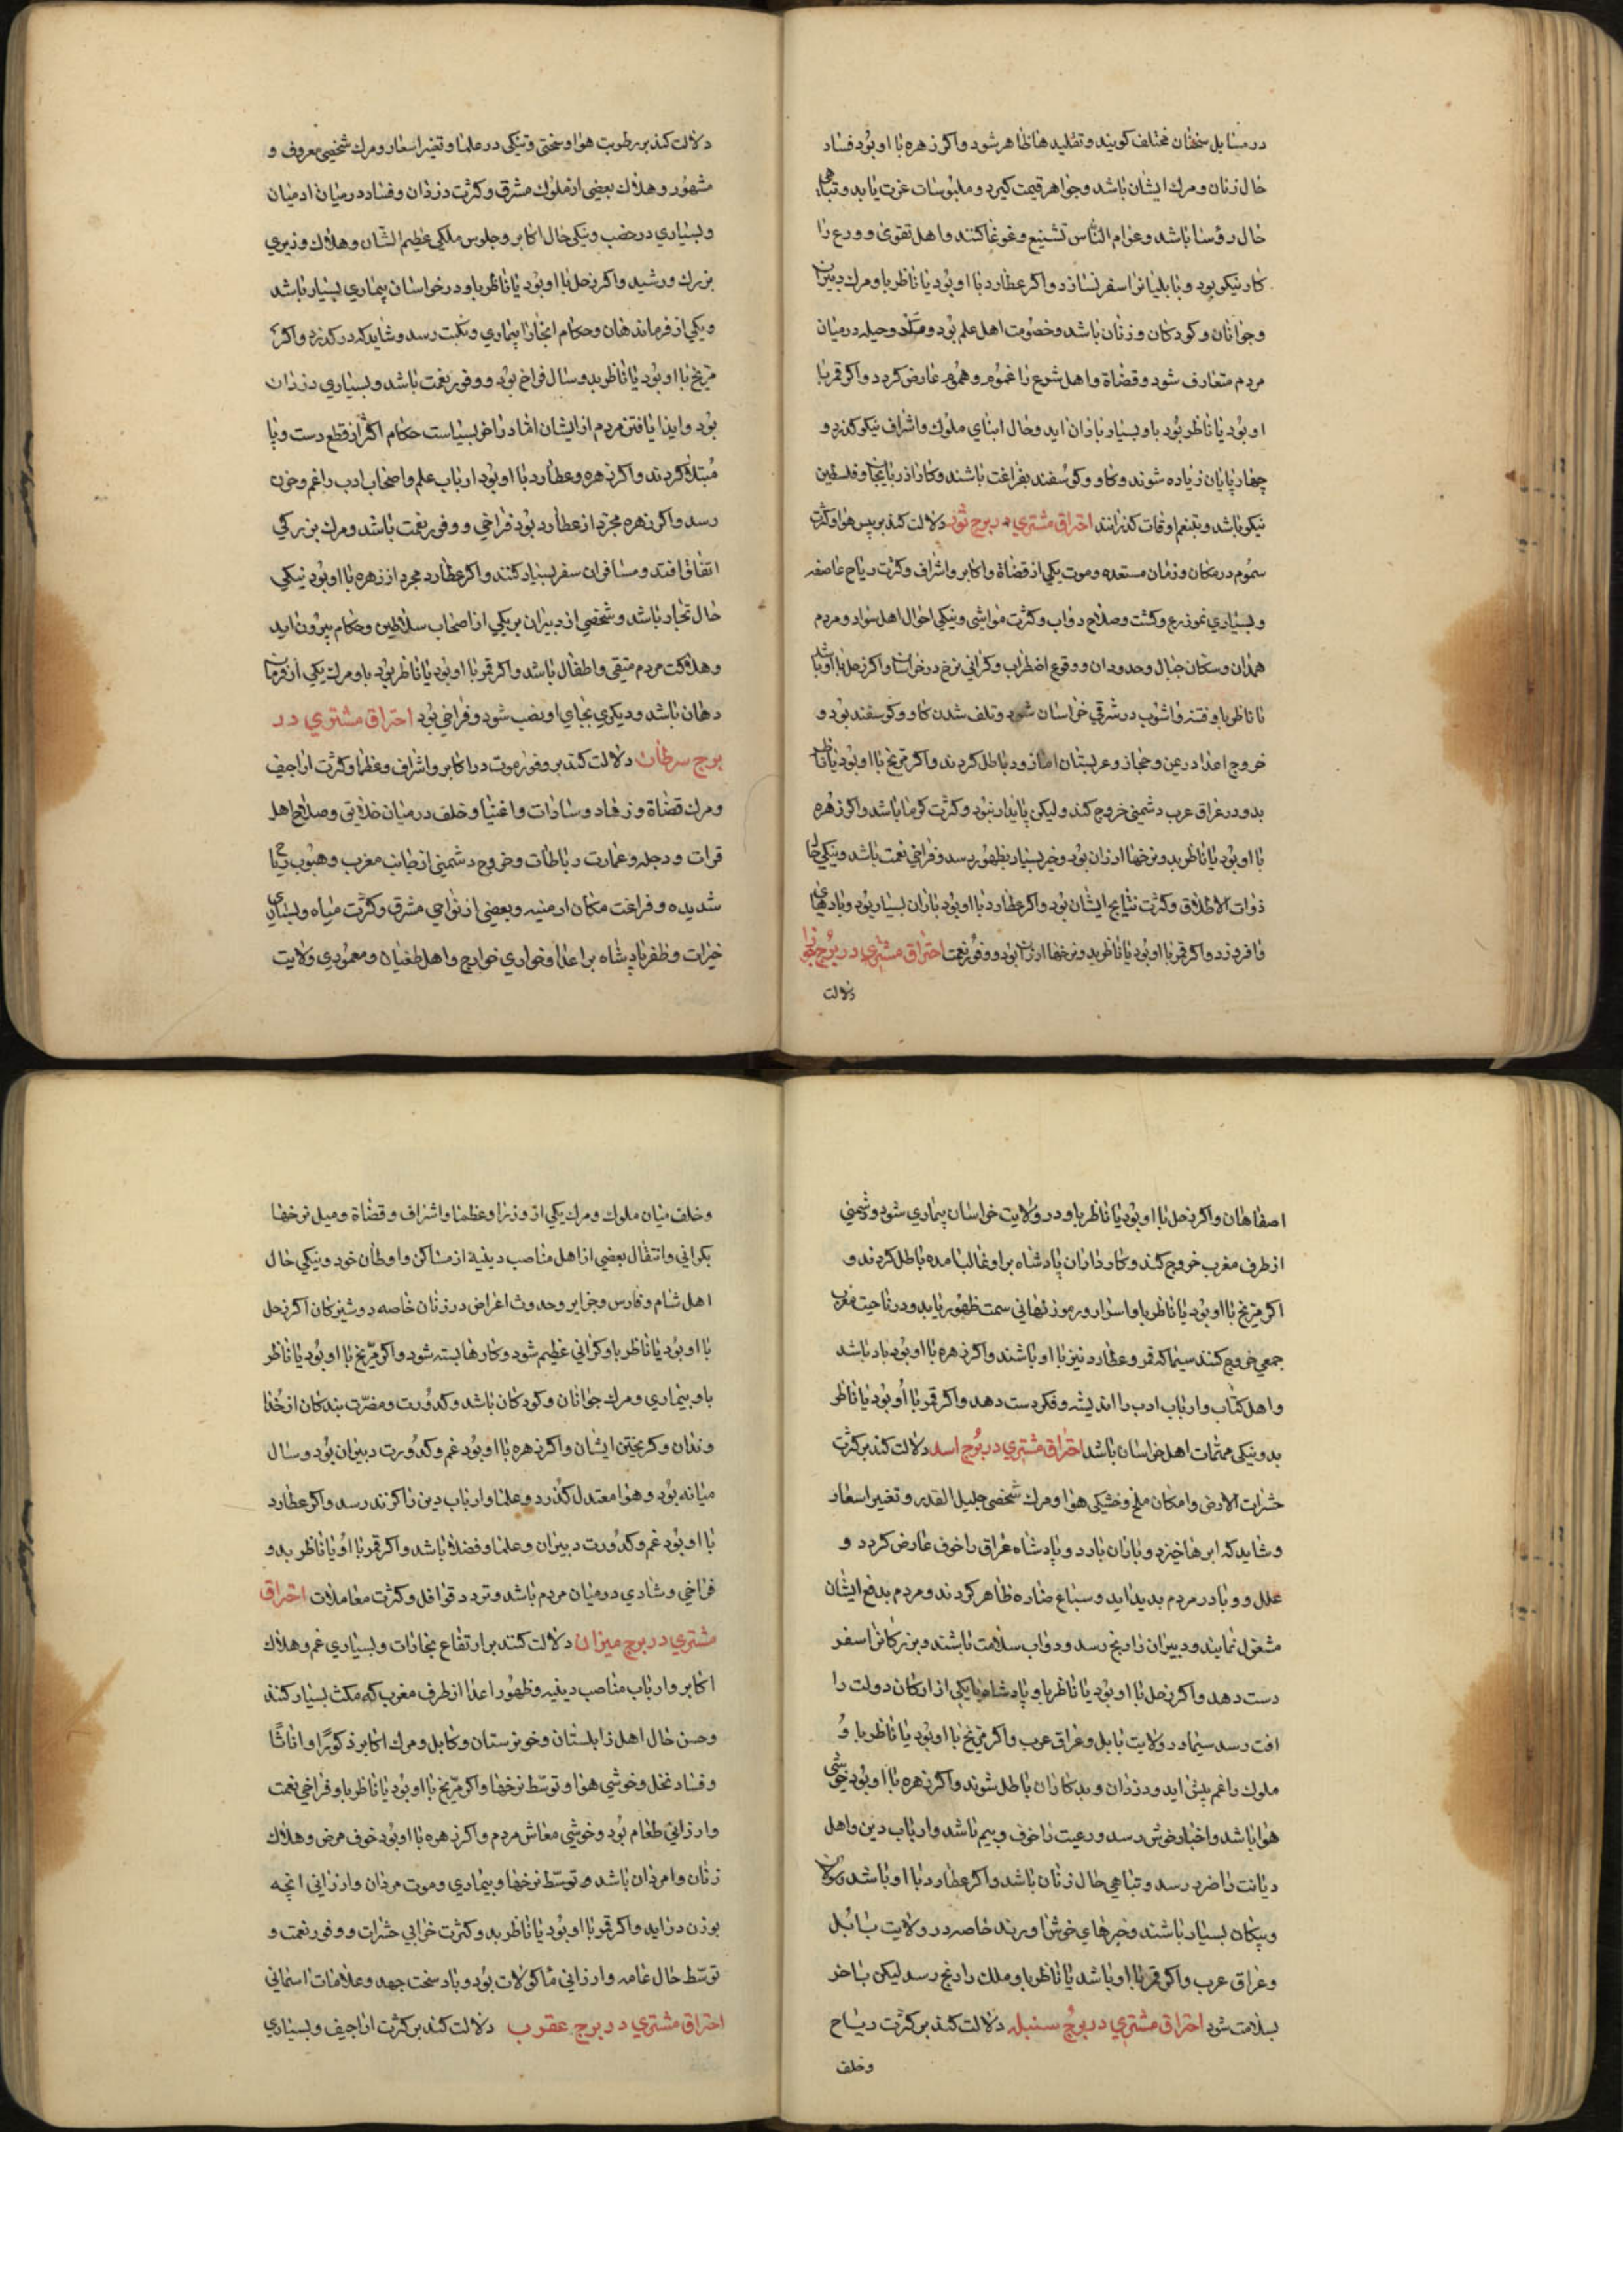 در مسایل سخنان مختلف کویند و تقلیدها ظاهر شود و اکر زهره با او بود فساد
حال زنان و مرک ایشان باشد و جواهر قیمت کیرد و ملبوسات عزت یابد و تباهی
حال رؤسا باشد و عوام الناس تشنیع و غوغا کنند و اهل تقوی و ورع را
کار نیکو بود و بابلیانرا سفر بسازد و اکر عطارد با او بود یا ناظر باو مرک دبیران
و جوانان و کودکان و زنان باشد و خصومت اهل علم بود و مکر و حیله در میان
مردم متعارف شود و قضاة و اهل شرع را غموم و هموم عارض کردد و اکر قمر با
او بود یا ناظر بود باو بسیار باران اید و حال ابنای ملوک و اشراف نیکو کذرد و
چهارپایان زیاده شوند و کاو و کوسفند بفراغت باشند و کار اذربایجان و فلسطین
نیکو باشد و بتنعم اوقات کذرانند احتراق مشتری در برج ثور دلالت کند بر یبس هوا و کثرت
سموم در مکان و زمان مستعده و موت یکی از قضاة و اکابر و اشراف و کثرت ریاح عاصفه
و بسیاری نمو زرع و کشت و صلاح دواب و کثرت مواشی و نیکی احوال اهل سواد و مردم
همدان و سکان جبال و حدود ان و وقوع اضطراب و کرانی نرخ در خراسان و اکر زحل با او باشد
یا ناظر باو فتنه و اشوب در شرقی خراسان شود و تلف شدن کاو و کوسفند بود و
خروج اعدا در یمن و حجاز و عربستان اما زود باطل کردند و اکر مریخ با او بود یا ناظر
بدو در عراق عرب دشمنی خروج کند ولیکن پایدار نبود و کثرت کرما باشد و اکر زهره
با او بود یا ناظر بدو نرخها ارزان بود و خیر بسیار بظهور رسد و فراخی نعمت باشد و نیکی حال
ذوات الاطلاق و کثرت نتایج ایشان بود و اکر عطارد با او بود باران بسیار بود و بادهای
وافر وزد و اکر قمر با او بود یا ناظر بدو نرخها ارزان بود و وفور نعمت احتراق مشتری در برج جوزا
دلالت
دلالت کند بر رطوبت هوا و سختی و تنکی در علما و تغیر اسعار و مرک شخصی معروف و
مشهور و هلاک بعضی از ملوک مشرق و کثرت دزدان و فساد در میان ادمیان
و بسیاری در خصب و نیکی حال اکابر و جلوس ملکی عظیم الشان و هلاک وزیری
بزرک و رشید و اکر زحل با او بود یا ناظر باو در خراسان بیماری بسیار باشد
و یکی از فرماندهان و حکام انجا را بیماری و نکبت رسد و شاید که در کذرد و اکر
مریخ با او بود یا ناظر بدو سال فراخ بود و وفور نعمت باشد و بسیاری دزدان
بود و ایذا یافتن مردم از ایشان اما در اخر بسیاست حکام اکثر از قطع دست و پا
مبتلا کردند و اکر زهره و عطارد با او بود ارباب علم و اصحاب ادب را غم و حزن
رسد و اکر زهره مجرد از عطارد بود فراخی و وفور نعمت باشد و مرک بزرکی
اتفاق افتد و مسافران سفر بسیار کنند و اکر عطارد مجرد از زهره با او بود نیکی
حال تجار باشد و شخصی از دبیران بر یکی از اصحاب سلاطین و حکام بیرون اید
و هلاکت مردم متقی و اطفال باشد و اکر قمر با او بود یا ناظر بود باو مرک یکی از فرمان
دهان باشد و دیکری بجای او نصب شود و فراخی بود احتراق مشتری در
برج سرطان دلالت کند بر وفور موت در اکابر و اشراف و عظما و کثرت اراجیف
و مرک قضاة و زهاد و سادات و اغنیا و خلف در میان خلایق و صلاح اهل
فرات و دجله و عمارت رباطات و خروج دشمنی از جانب مغرب و هبوب ریاح
شدیده و فراغت مکان ارمنیه و بعضی از نواحی مشرق و کثرت میاه و بسیاری
خیرات و ظفر پادشاه بر اعدا و خواری خوارج و اهل طغیان و معموری ولایت
اصفاهان و اکر زحل با او بود یا ناظر باو در ولایت خراسان بیماری شود و دشمنی
از طرف مغرب خروج کند و کارداران پادشاه برو غالب امده باطل کردند و
اکر مریخ با او بود یا ناظر باو اسرار و رموز نهانی سمت ظهور یابد و در ناحیت مغرب
جمعی خروج کنند سیما که قمر و عطارد نیز با او باشند و اکر زهره با او بود باد باشد
و اهل کتاب و ارباب ادب را اندیشه و فکر دست دهد و اکر قمر با او بود یا ناظر
بدو نیکی مهمات اهل خراسان باشد احتراق مشتری در برج اسد دلالت کند بر کثرت
حشرات الارض و امکان ملخ و خشکی هوا و مرک شخصی جلیل القدر و تغیر اسعار
و شاید که ابرها خیزد و باران بارد و پادشاه عراق را خوف عارض کردد و
علل و وبا در مردم بدید اید و سباع ضاره ظاهر کردند و مردم بدفع ایشان
مشغول نمایند و دبیران را رنج رسد و دواب سلامت باشند و بزرکانرا سفر
دست دهد و اکر زحل با او بود یا ناظر باو پادشاه یا یکی از ارکان دولت را
افت رسد سیما در ولایت بابل و عراق عرب و اکر مریخ با او بود یا ناظر باو
ملوک را غم پیش اید و دزدان و بدکاران باطل شوند و اکر زهره با او بود خوشی
هوا باشد و اخبار خوش رسد و رعیت را خوف و بیم باشد و ارباب دین و اهل
دیانت را ضرر رسد و تباهی حال زنان باشد و اکر عطارد با او باشد رسولان
و پیکان بسیار باشند و خبرهای خوش اورند خاصه در ولایت بابل
و عراق عرب و اکر قمر با او باشد یا ناظر باو ملک را رنج رسد لیکن باخر
بسلامت شود احتراق مشتری در برج سنبله دلالت کند بر کثرت ریاح
و خلف
و خلف میان ملوک و مرک یکی از وزرا و عظما و اشراف و قضاة و میل نرخها
بکرانی و انتقال بعضی از اهل مناصب دینیه از مساکن و اوطان خود و نیکی حال
اهل شام و فارس و جزایر و حدوث اعراض در زنان خاصه دوشیزکان اکر زحل
با او بود یا ناظر باو کرانی عظیم شود و کارها بسته شود و اکر مریخ با او بود یا ناظر
باو بیماری و مرک جوانان و کودکان باشد و کدورت و مضرت بندکان از خدا
وندان و کریختن ایشان و اکر زهره با او بود غم و کدورت دبیران بود و سال
میانه بود و هوا معتدل کذرد و علما و ارباب دین را کزند رسد و اکر عطارد
با او بود غم و کدورت دبیران و علما و فضلا باشد و اکر قمر با او یا ناظر بدو
فراخی و شادی در میان مردم باشد و تردد قوافل و کثرت معاملات احتراق
مشتری در برج میزان دلالت کنند بر ارتفاع بخارات و بسیاری غم و هلاک
اکابر و ارباب مناصب دینیه و ظهور اعدا از طرف مغرب که مکث بسیار کنند
و حسن حال اهل زابلستان و خوزستان و کابل و مرک اکابر ذکورا و اناثا
و فساد نخل و خوشی هوا و توسط نرخها و اکر مریخ با او بود یا ناظر باو فراخی نعمت
و ارزانی طعام بود و خوشی معاش مردم و اکر زهره با او بود خوف مرض و هلاک
زنان و امردان باشد و توسط نرخها و بیماری و موت مردان و ارزانی انچه
بوزن دراید و اکر قمر با او بود یا ناظر بدو کثرت خرابی حشرات و وفور نعمت و
توسط حال عامه و ارزانی ماکولات بود و باد سخت جهد و علامات اسمانی
احتراق مشتری در برج عقرب دلالت کند بر کثرت اراجیف و بسیاری